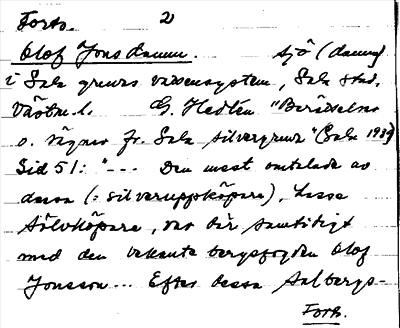 Forts. 2
Olof Jons damm. Sjö (damm)
i Sala gruvas vattensystem, Sala stad,
Västm.l. G. Hedlén "Berättelser
o. sägner fr. Sala silvergruva" (Sala 1939)
Sid 51: "--- Den mest omtalade av
dessa (: silveruppköpare), Lasse
Silvköpare, var där samtidigt
med den bekante bergsfogden Olof
Jonsson... Efter dessa Salbergs-
Forts.